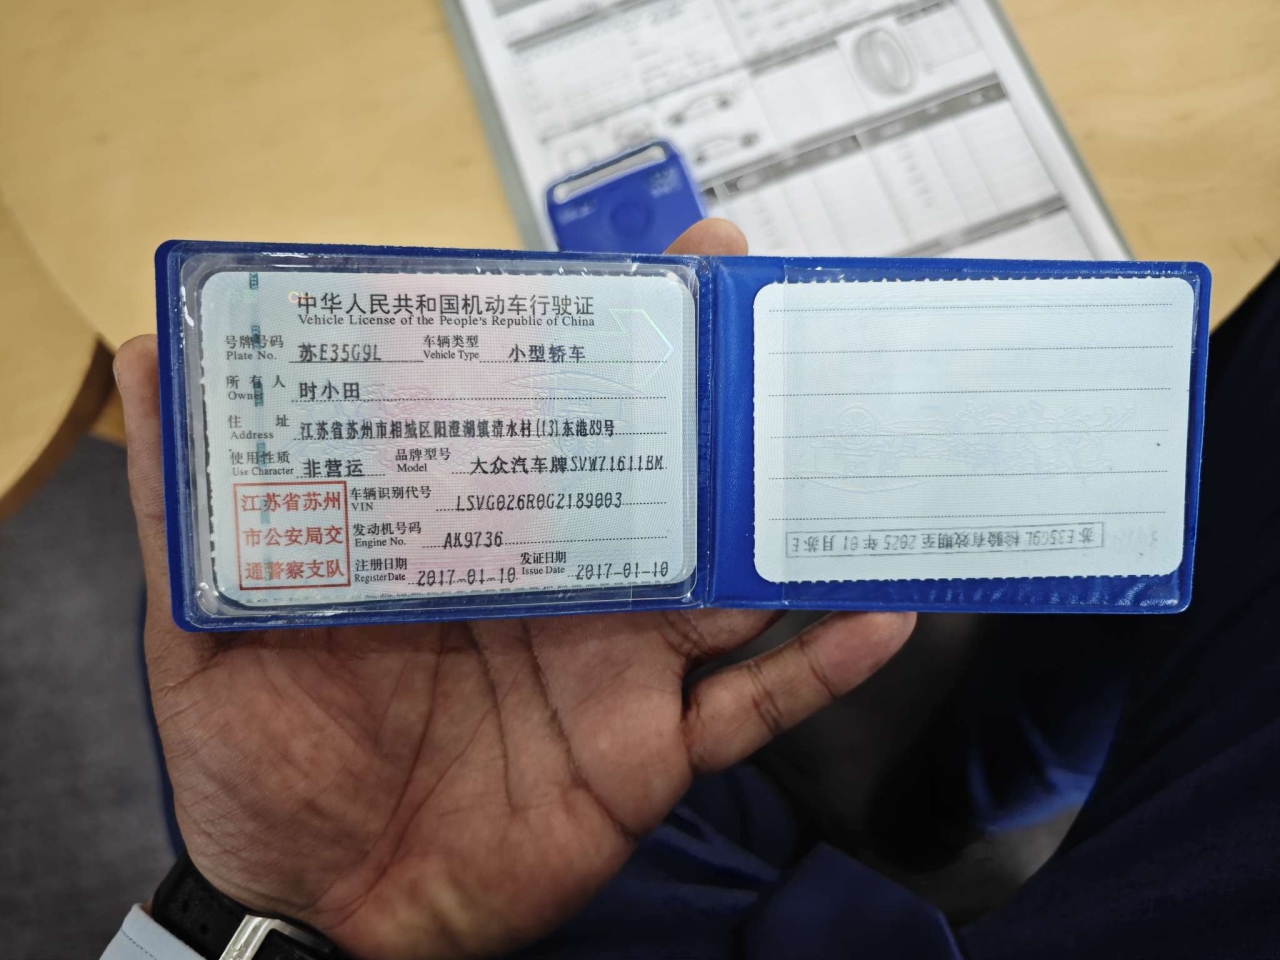 中华人民共和国机动车行驶证
Vehicle License of the People's Republic of China
号牌号码 苏E35G9L 车辆类型 小型轿车
Plate No. Vehicle Type
所有人 时小田
Owner
住址 江苏省苏州市相城区阳澄湖镇清水村(13)东港89号
Address
使用性质 非营运 品牌型号 大众汽车牌SVW71611BM
Use Character Model
车辆识别代号 LSVG026R0G2189003
VIN
发动机号码 AK9736
Engine No.
注册日期 2017-01-10 发证日期 2017-01-10
Register Date Issue Date
江苏省苏州
市公安局交
通警察支队
苏E35G9L 检验有效期至 2025年01月苏E